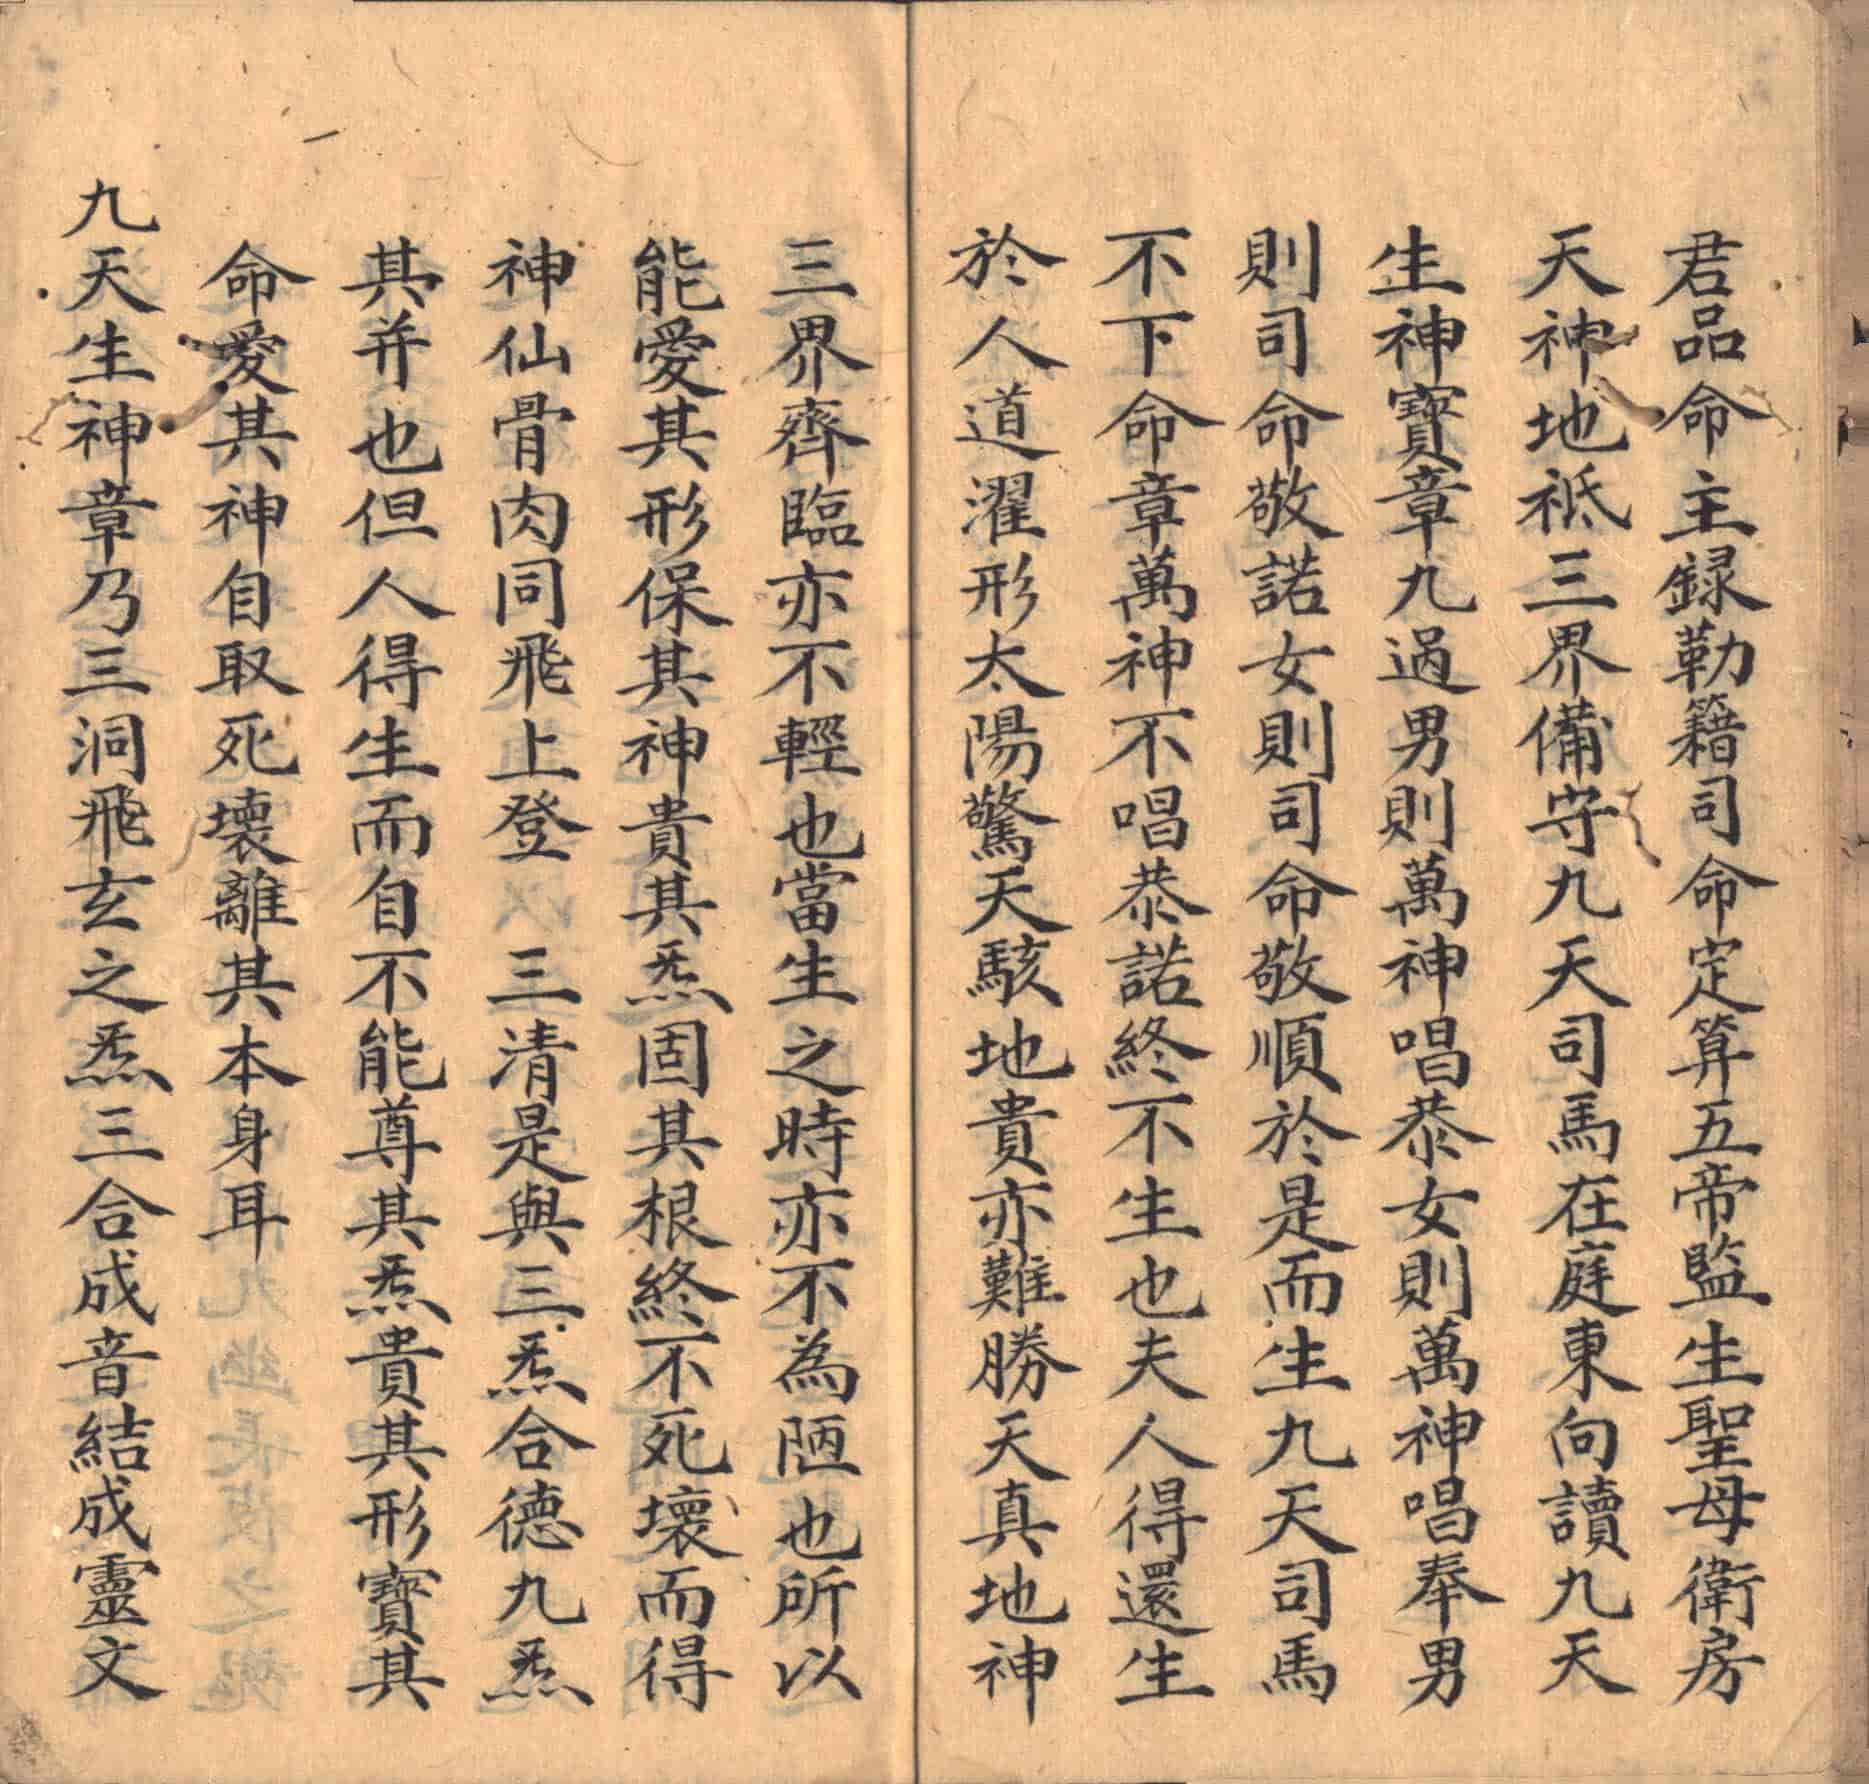 君品命主録勒籍司命定算五帝監生聖母衛房
天神地祇三界備守九天司馬在庭東向讀九天
生神寶章九過男則萬神唱恭女則萬神唱奉男
則司命敬諾女則司命敬順於是而生九天司馬
不下命章萬神不唱恭諾終不生也夫人得還生
於人道濯形太陽驚天駭地貴亦難勝天真地神
三界齊臨亦不輕也當生之時亦不為陋也所以
能愛其形保其神貴其炁固其根終不死壞而得
神仙骨肉同飛上登三清是與三炁合德九炁
其并也但人得生而自不能尊其炁貴其形寶其
命愛其神自取死壞離其本身耳
九天生神章乃三洞飛玄之炁三合成音結成靈文